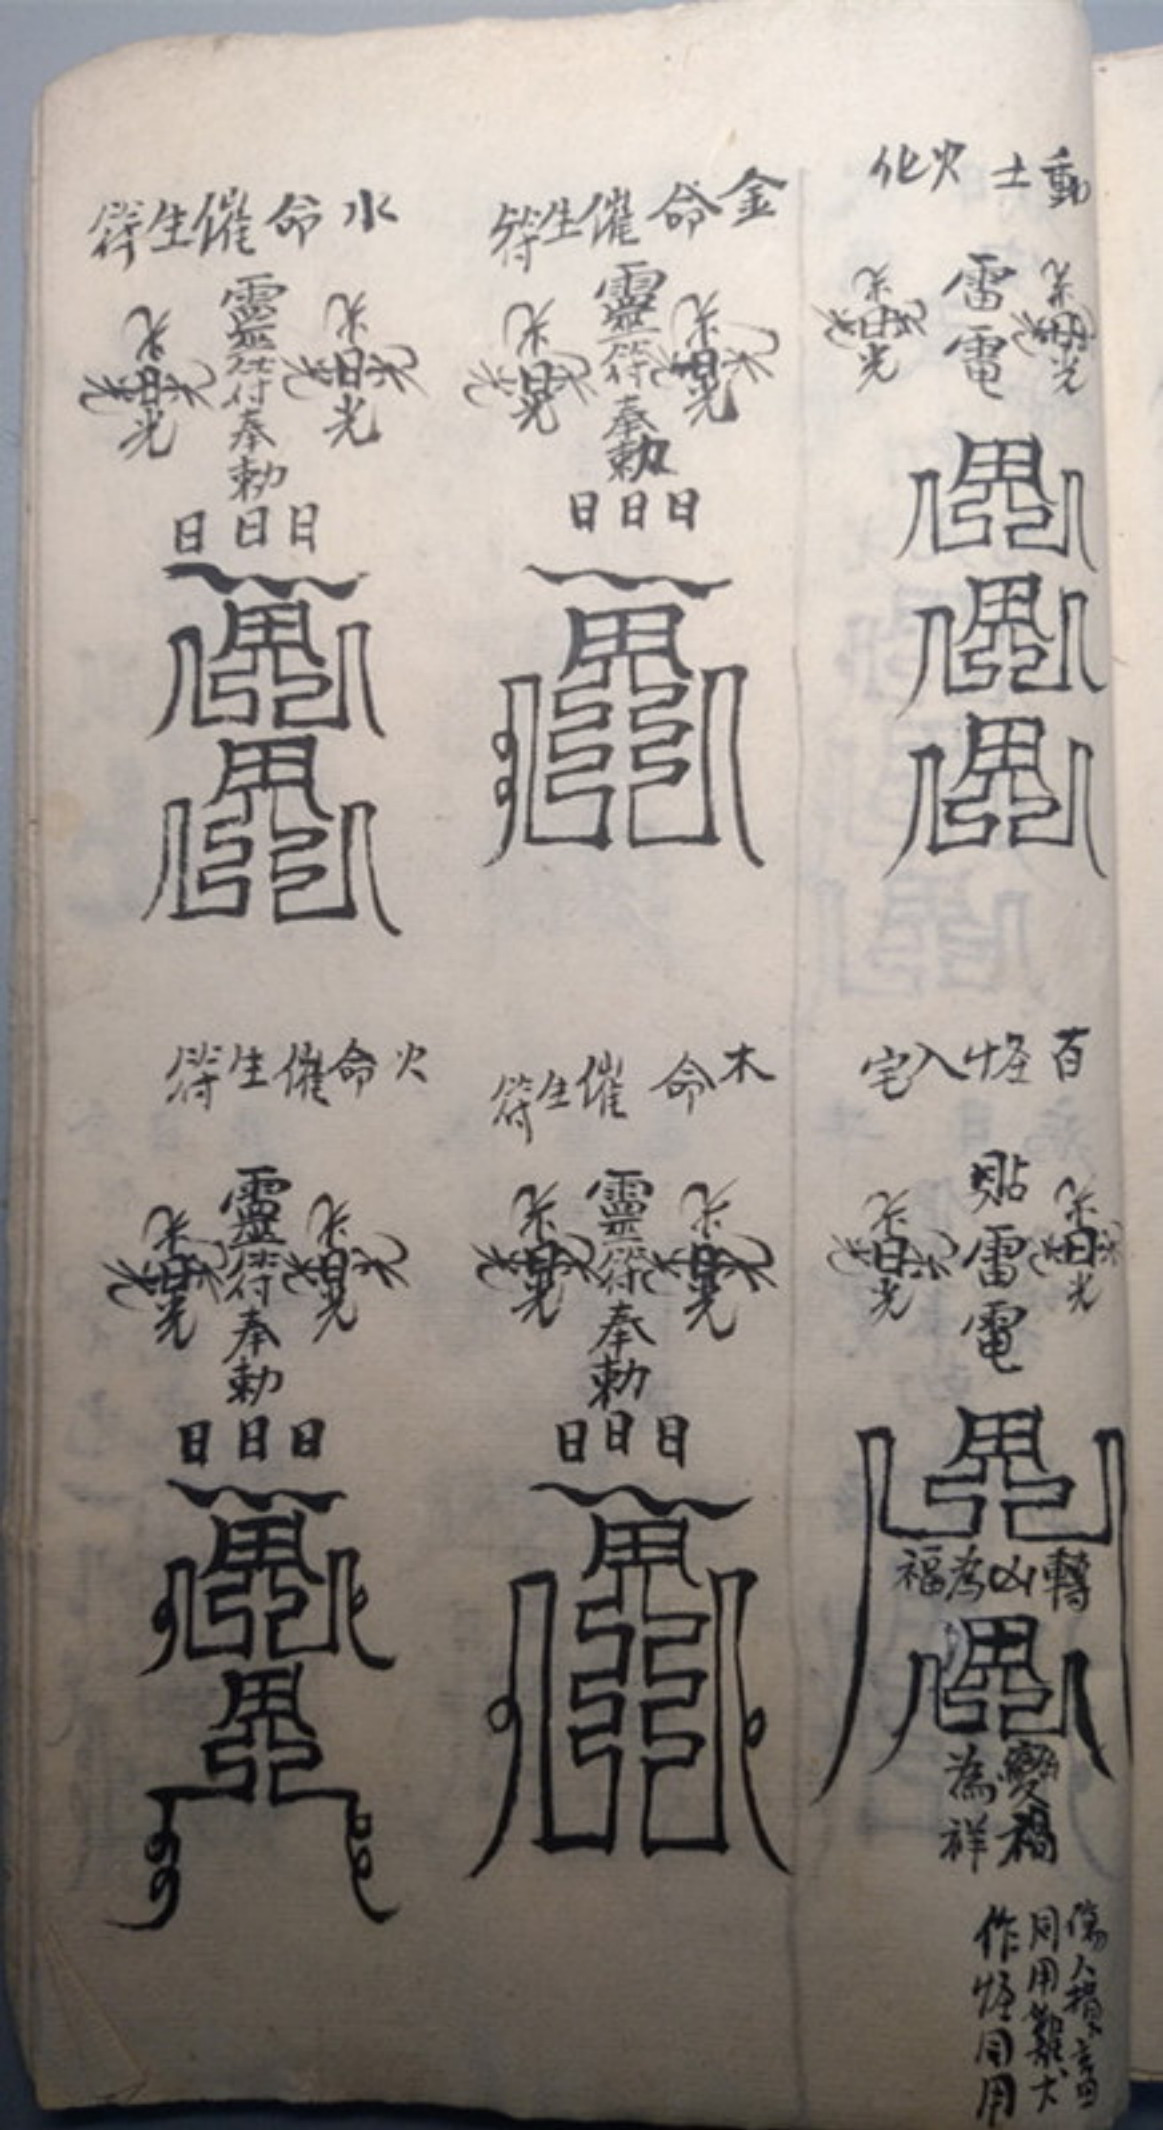 動土火化
雷電
日光
日光
百怪入宅
貼雷電
日光
日光
轉凶為福
變禍為祥
傷人損畜
同用雞犬
作怪同用
金命催生符
靈符奉勅
日光
日光
日日日
木命催生符
靈符奉勅
日光
日光
日日日
水命催生符
靈符奉勅
日光
日光
日日日
火命催生符
靈符奉勅
日光
日光
日日日